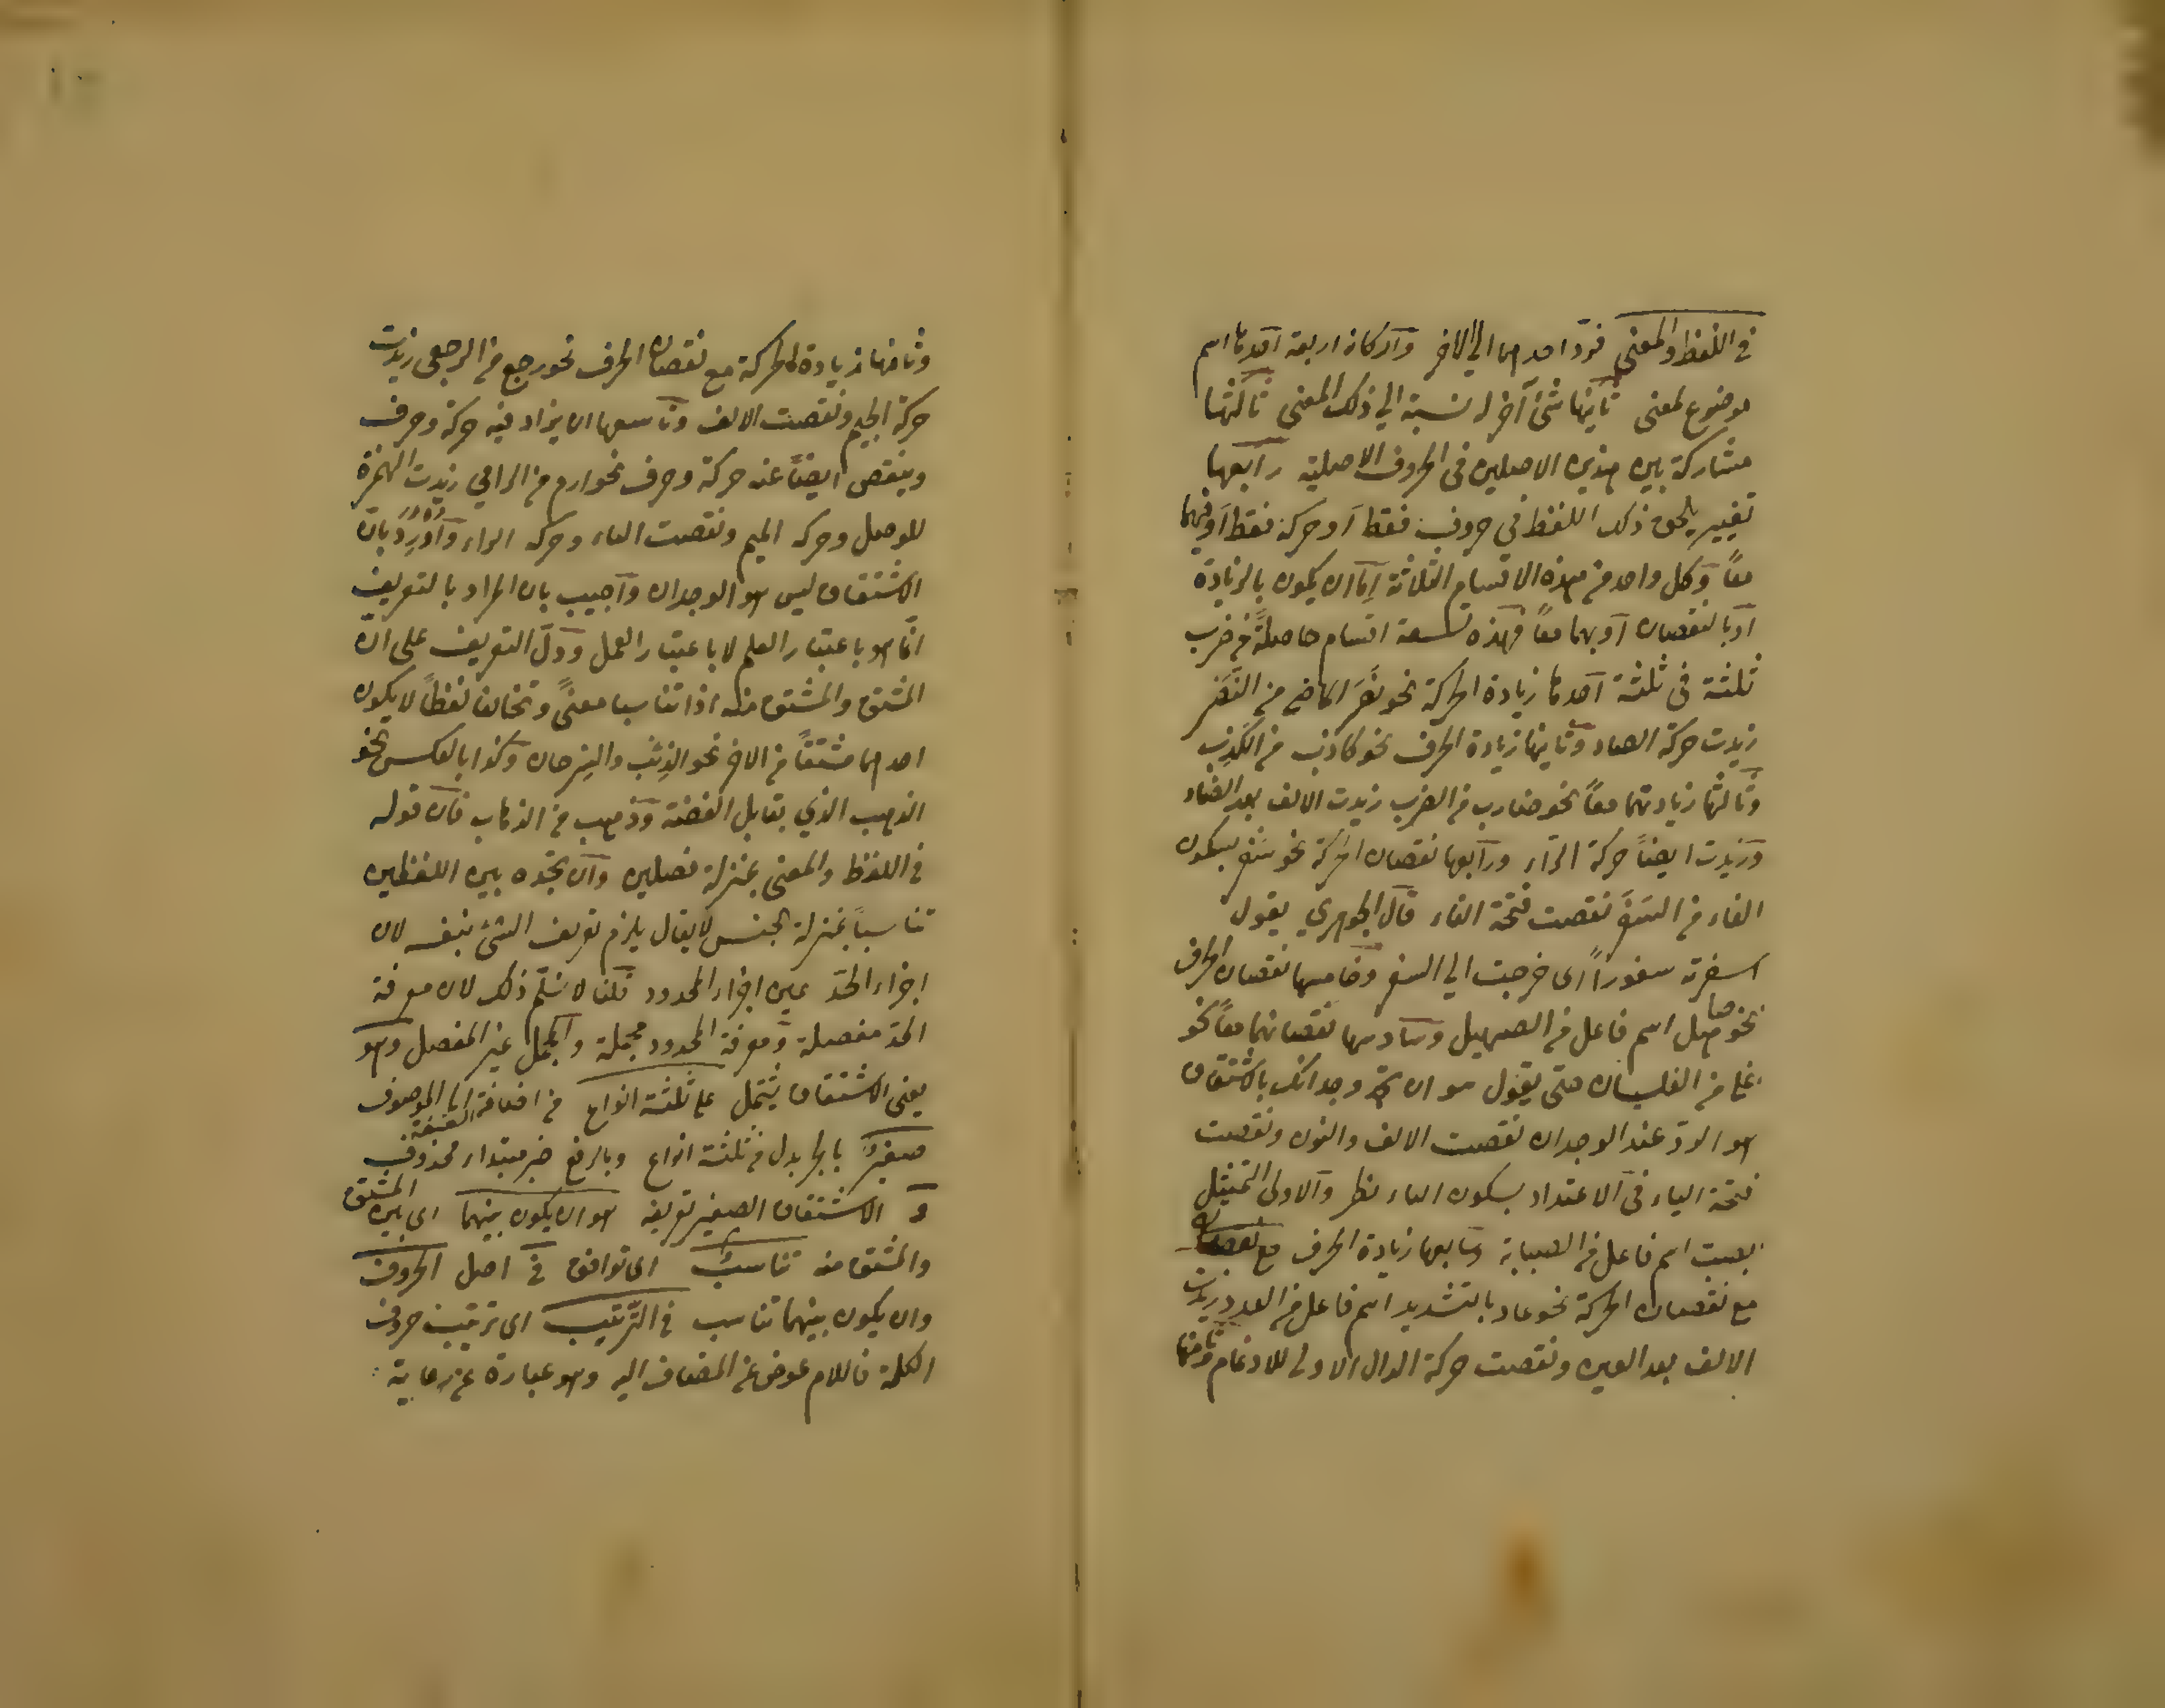 في اللفظ والمعنى فترد احدهما الى الاخر وآركانه اربعة آحدها اسم
موضوع لمعنى ثانيها شئ آخر له نسبة الى ذلك المعنى ثالثها
مشاركة بين هذين الاصلين فى الحروف الاصلية رابعها
تغيير يلحق ذلك اللفظ في حروف فقط آو حركة فقط آو فيهما
معاً وكل واحد من هذه الاقسام الثلاثة إمّا ان يكون بالزيادة
آو بالنقصان آو بهما معاً فهذه تسعة اقسام حاصلةً من ضرب
ثلثة فى ثلثة آحدها زيادة الحركة نحو نصَر الماضي من النَصْر
زيدت حركة الصاد وثانيها زيادة الحرف نحو كاذب من الكَذِب
وثالثها زيادتهما معاً نحو ضارب من الضرب زيدت الالف بعد الضاد
وزيدت ايضاً حركة الراء ورابعها نقصان الحركة نحو سَفْر بسكون
الفاء من السَفَر نقصت فتحة الفاء قال الجوهري يقول
اسفرته سفوراً اى خرجت الى السفر وخامسها نقصان الحرف
نحو صاهل اسم فاعل من الصهيل وسادسها نقصانهما معاً نحو
غلى من الغليان حتى يقول هو ان تجد وجدانك بالاشتقاق
هو الرد عند الوجدان نقصت الالف والنون ونقصت
فتحة الياء فى الاعتداد بسكون الياء نظر والاولى التمثيل
بصب اسم فاعل من الصبابة وسابعها زيادة الحرف مع نقصان
مع نقصان الحركة نحو عاد بالتشديد اسم فاعل من العدد زيدت
الالف بعد العين ونقصت حركة الدال الاولى للادغام وثامنها
وثامنها زيادة الحركة مع نقصان الحرف نحو رجع من الرجعى زيدت
حركة الجيم ونقصت الالف وتاسعها ان يزاد فيه حركة وحرف
وينقص ايضاً عنه حركة وحرف نحو ارم من الرامي زيدت الهمزة
للوصل وحركة الميم ونقصت الياء وحركة الراء وآورد بانّ
الاشتقاق ليس هو الوجدان وآجيب بان المراد بالتعريف
انّما هو باعتبار العلم لا باعتبار العمل ودلّ التعريف على انّ
المشتق والمشتق منه اذا تناسبا معنىً وتخالفا لفظاً لا يكون
احدهما مشتقاً من الاخر نحو الذِئب والسِرحان وكذا بالعكس نحو
الذهب الذي يقابل الفضة وذهب من الذهاب فآن قوله
في اللفظ والمعنى بمنزلة فصلين وآن تجده بين اللفظين
تناسباً بمنزلة الجنس لا يقال يلزم تعريف الشئ بنفسه لان
اجزاء الحدّ عين اجزاء المحدود قلنا لا نسلّم ذلك لان معرفة
الحدّ مفصلة ومعرفة المحدود مجملة والمجمل غير المفصل وهو
يعنى الاشتقاق يشتمل على ثلثة انواع من اضافة الصفة الى الموصوف
صغيرٌ بالجر بدل من ثلثة انواع وبالرفع خبر مبتداء محذوف
و الاشتقاق الصغير تعريفه هو ان يكون بينهما اى بين المشتق
والمشتق منه تناسبٌ اى توافق فى اصل الحروف
وان يكون بينهما تناسب فى التّرتيب اى ترتيب حروف
الكلمة فاللام عوض عن المضاف اليه وهو عبارة عن رعاية